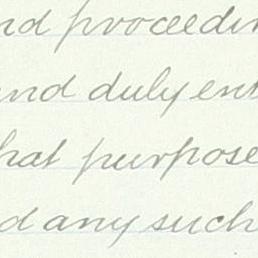 nd proceedin
and duly ent
hat purpose
d any such